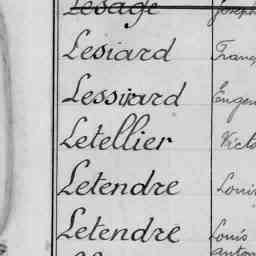 Lesage Joseph
Lesiard Franç
Lessirard Eugen
Letellier Victo
Letendre Louis
Letendre Louis
anton